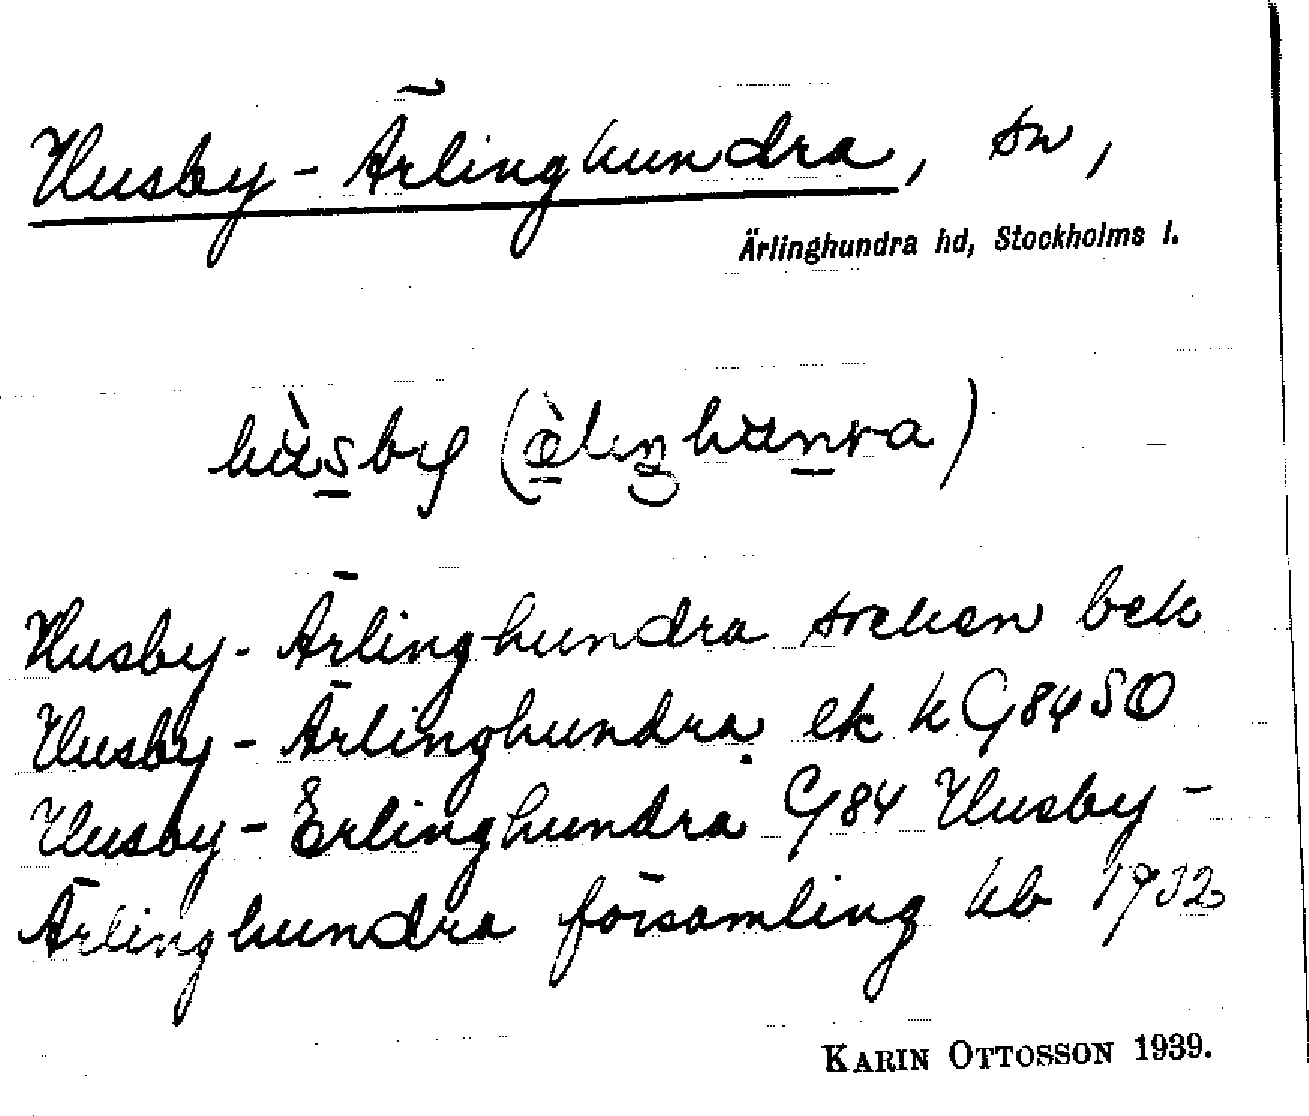 Husby-Ärlinghundra, sn,
Ärlinghundra hd, Stockholms l.
hùsby (ǽliŋhunra)
Husby-Ärlinghundra socken bek
Husby-Ärlinghundra ek k G84 SO
Husby-Erlinghundra G84 Husby-
Ärlinghundra församling kb 1932
KARIN OTTOSSON 1939.